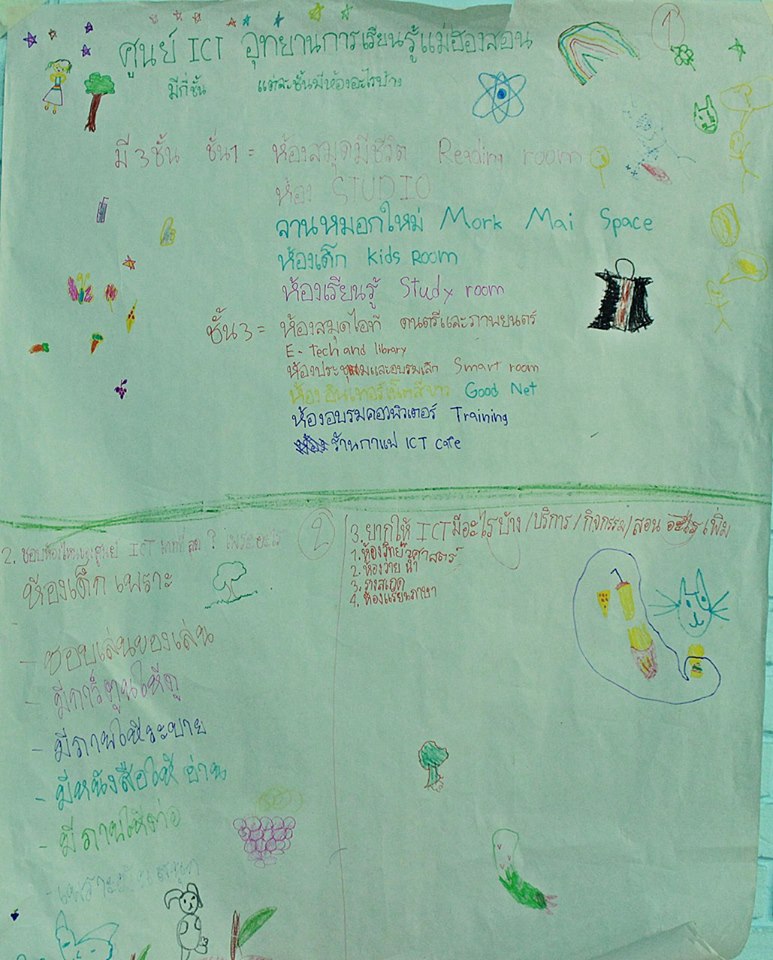 ศูนย์ ICT อุทยานการเรียนรู้แม่ฮ่องสอน
1
มีกี่ชั้น แต่ละชั้นมีห้องอะไรบ้าง
มี 3 ชั้น ชั้น 1 = ห้องสมุดมีชีวิต Reading room
ห้อง STUDIO
ลานหมอกใหม่ Mork Mai Space
ห้องเด็ก Kids Room
ห้องเรียนรู้ Study room
ชั้น 3 = ห้องสมุดไอที ดนตรีและภาพยนตร์
E - tech and library
ห้องประชุมและอบรมเล็ก Smart room
ห้องอินเทอร์เน็ตสีขาว Good Net
ห้องอบรมคอมพิวเตอร์ Training
ร้านกาแฟ ICT cafe
2
2. ชอบห้องไหนของศูนย์ ICT มากที่สุด ? เพราะอะไร
ห้องเด็ก เพราะ
- ชอบเล่นของเล่น
- มีการ์ตูนให้ดู
- มีภาพให้ระบาย
- มีหนังสือให้อ่าน
- มีภาพให้ต่อ
3. ยากให้ ICT มีอะไรบ้าง / บริการ / กิจกรรม / สอน อะไร เพิ่ม
1. ห้องวิทย์าศาสตร์
2. ห้องวายน้ำ
3.
4. ห้องเรียนภาษา